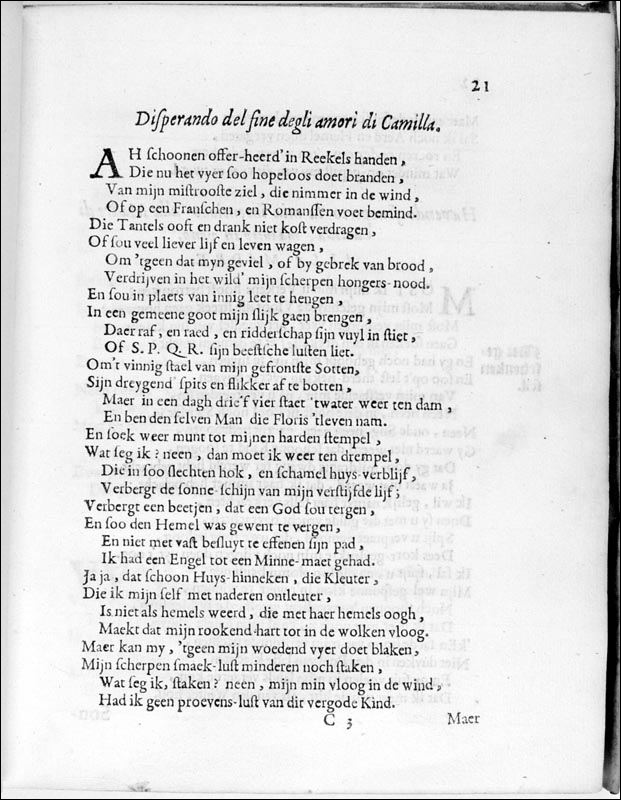 21
Diſperando del fine degli amori di Camilla.
AH ſchoonen offer-heerd' in Reekels handen,
Die nu het vyer ſoo hopeloos doet branden,
Van mijn miſtrooſte ziel, die nimmer in de wind,
Of op een Franſchen, en Romanſſen voet bemind.
Die Tantels ooft en drank niet koſt verdragen,
Of ſou veel liever lijf en leven wagen,
Om 'tgeen dat myn geviel, of by gebrek van brood,
Verdrijven in het wild' mijn ſcherpen hongers-nood.
En ſou in plaets van innig leet te hengen,
In een gemeene goot mijn ſlijk gaen brengen,
Daer raf, en raed, en ridderſchap ſijn vuyl in ſtiet,
Of S. P. Q. R. ſijn beeſtſche luſten liet.
Om't vinnig ſtael van mijn gefrontſte Sotten,
Sijn dreygend' ſpits en flikker af te botten,
Maer in een dagh drie'f vier ſtaet 'twater weer ten dam,
En ben den ſelven Man die Floris 'tleven nam.
En ſoek weer munt tot mijnen harden ſtempel,
Wat ſeg ik? neen, dan moet ik weer ten drempel,
Die in ſoo ſlechten hok, en ſchamel huys-verblijf,
Verbergt de ſonne-ſchijn van mijn verſtijfde lijf;
Verbergt een beetjen, dat een God ſou tergen,
En ſoo den Hemel was gewent te vergen,
En niet met vaſt beſluyt te effenen ſijn pad,
Ik had een Engel tot een Minne-maet gehad.
Ja ja, dat ſchoon Huys-hinneken, die Kleuter,
Die ik mijn ſelf met naderen ontleuter,
Is niet als hemels weerd, die met haer hemels oogh,
Maekt dat mijn rookend hart tot in de wolken vloog.
Maer kan my, 'tgeen mijn woedend vyer doet blaken,
Mijn ſcherpen ſmaek-luſt minderen noch ſtaken,
Wat ſeg ik, ſtaken? neen, mijn min vloog in de wind,
Had ik geen proevens-luſt van dit vergode Kind.
C 3 Maer